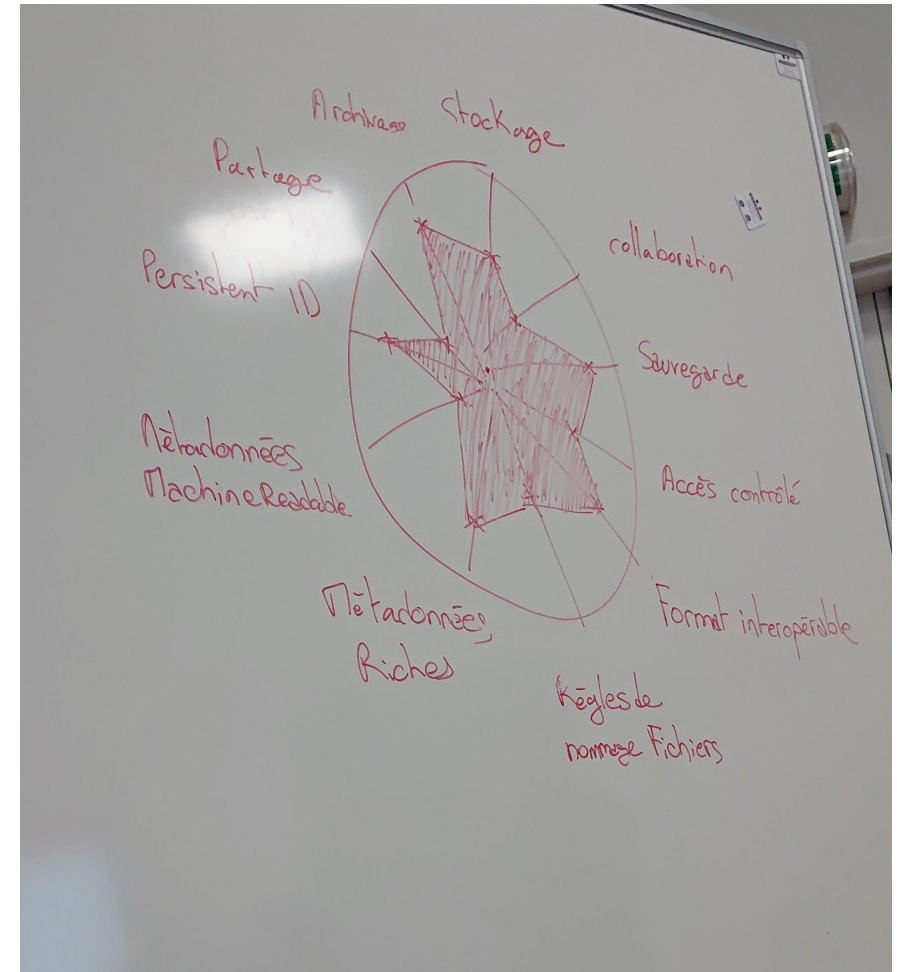 Archivage Stockage
Partage
collaboration
Persistent ID
Sauvegarde
Mētadonnēes
Machine Readable
Accès contrôlé
Mētadonnēes
Riches
Format interopérable
Règles de
nommage Fichiers